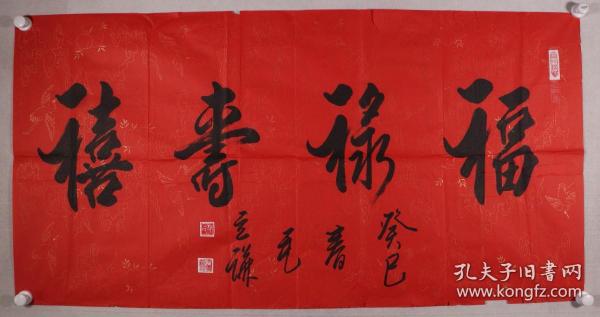 福禄壽禧
癸巳
春
毛
立谦
孔夫子旧书网
www.kongfz.com